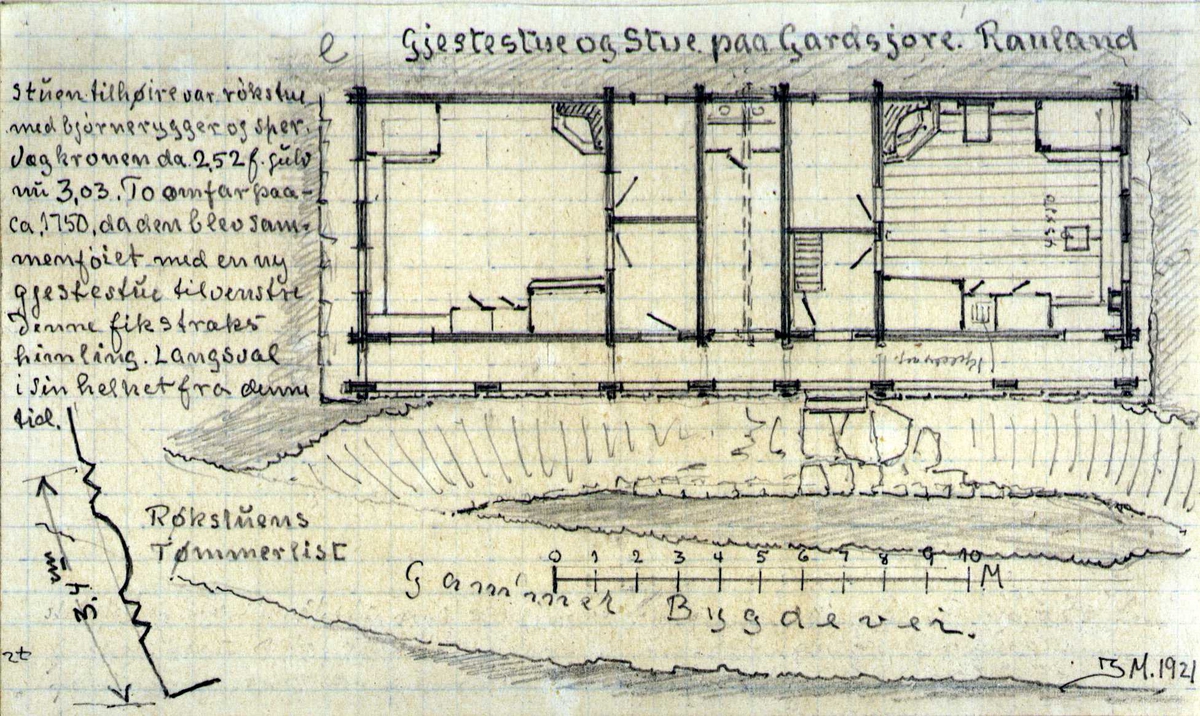 Gjestestue og Stue paa Gardsjore. Rauland
Stuen tilhøire var røkstue
med bjørnerygger og sper.
Vegkronen da 2,52 f. gulv
nu 3,03. To omfar paa-
ca, 1750, da den blev sam-
menføiet med en ny
gjestestue tilvenstre
Denne fik straks
himling. Langsval
i sin helhet fra denne
tid.
Røkstuens
Tømmerlist
3,4
0 1 2 3 4 5 6 7 8 9 10 M
Gammel Bygdevei.
M. 1921